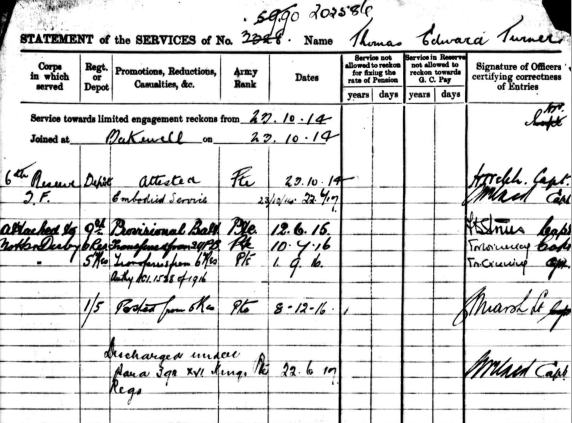 5990 202586
STATEMENT of the SERVICES of No. 3228. Name Thomas Edward Turner
Corps in which served
Regt. or Depot
Promotions, Reductions, Casualties, &c.
Army Rank
Dates
Service not allowed to reckon for fixing the rate of Pension
years days
Service in Reserve not allowed to reckon towards G. C. Pay
years days
Signature of Officers certifying correctness of Entries
Service towards limited engagement reckons from 23.10.14
Joined at Bakewell on 23.10.14
6th Reserve Depôt Attested Pte 23.10.14 Capt.
T.F. Embodied Service 23/10/14 22/6/17 Capt
Attached to 9th Provisional Batt Pte 12.6.15 Capt
Notts & Derby 6 Res Transferred from Pte 10.7.16 Capt
" 5 Res Transferred from 6 Res Pte 1.9.16
Authy ACI. 1528 of 1916
1/5 Posted from 5 Res Pte 8-12-16 Marsh Lt
Discharged under
Para 392 XVI Kings Pte 22.6.17 Capt
Regs